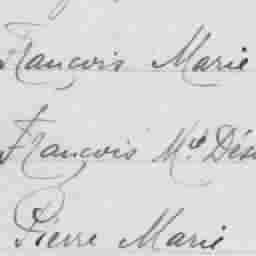 François Marie
François Mie Dés
Pierre Marie